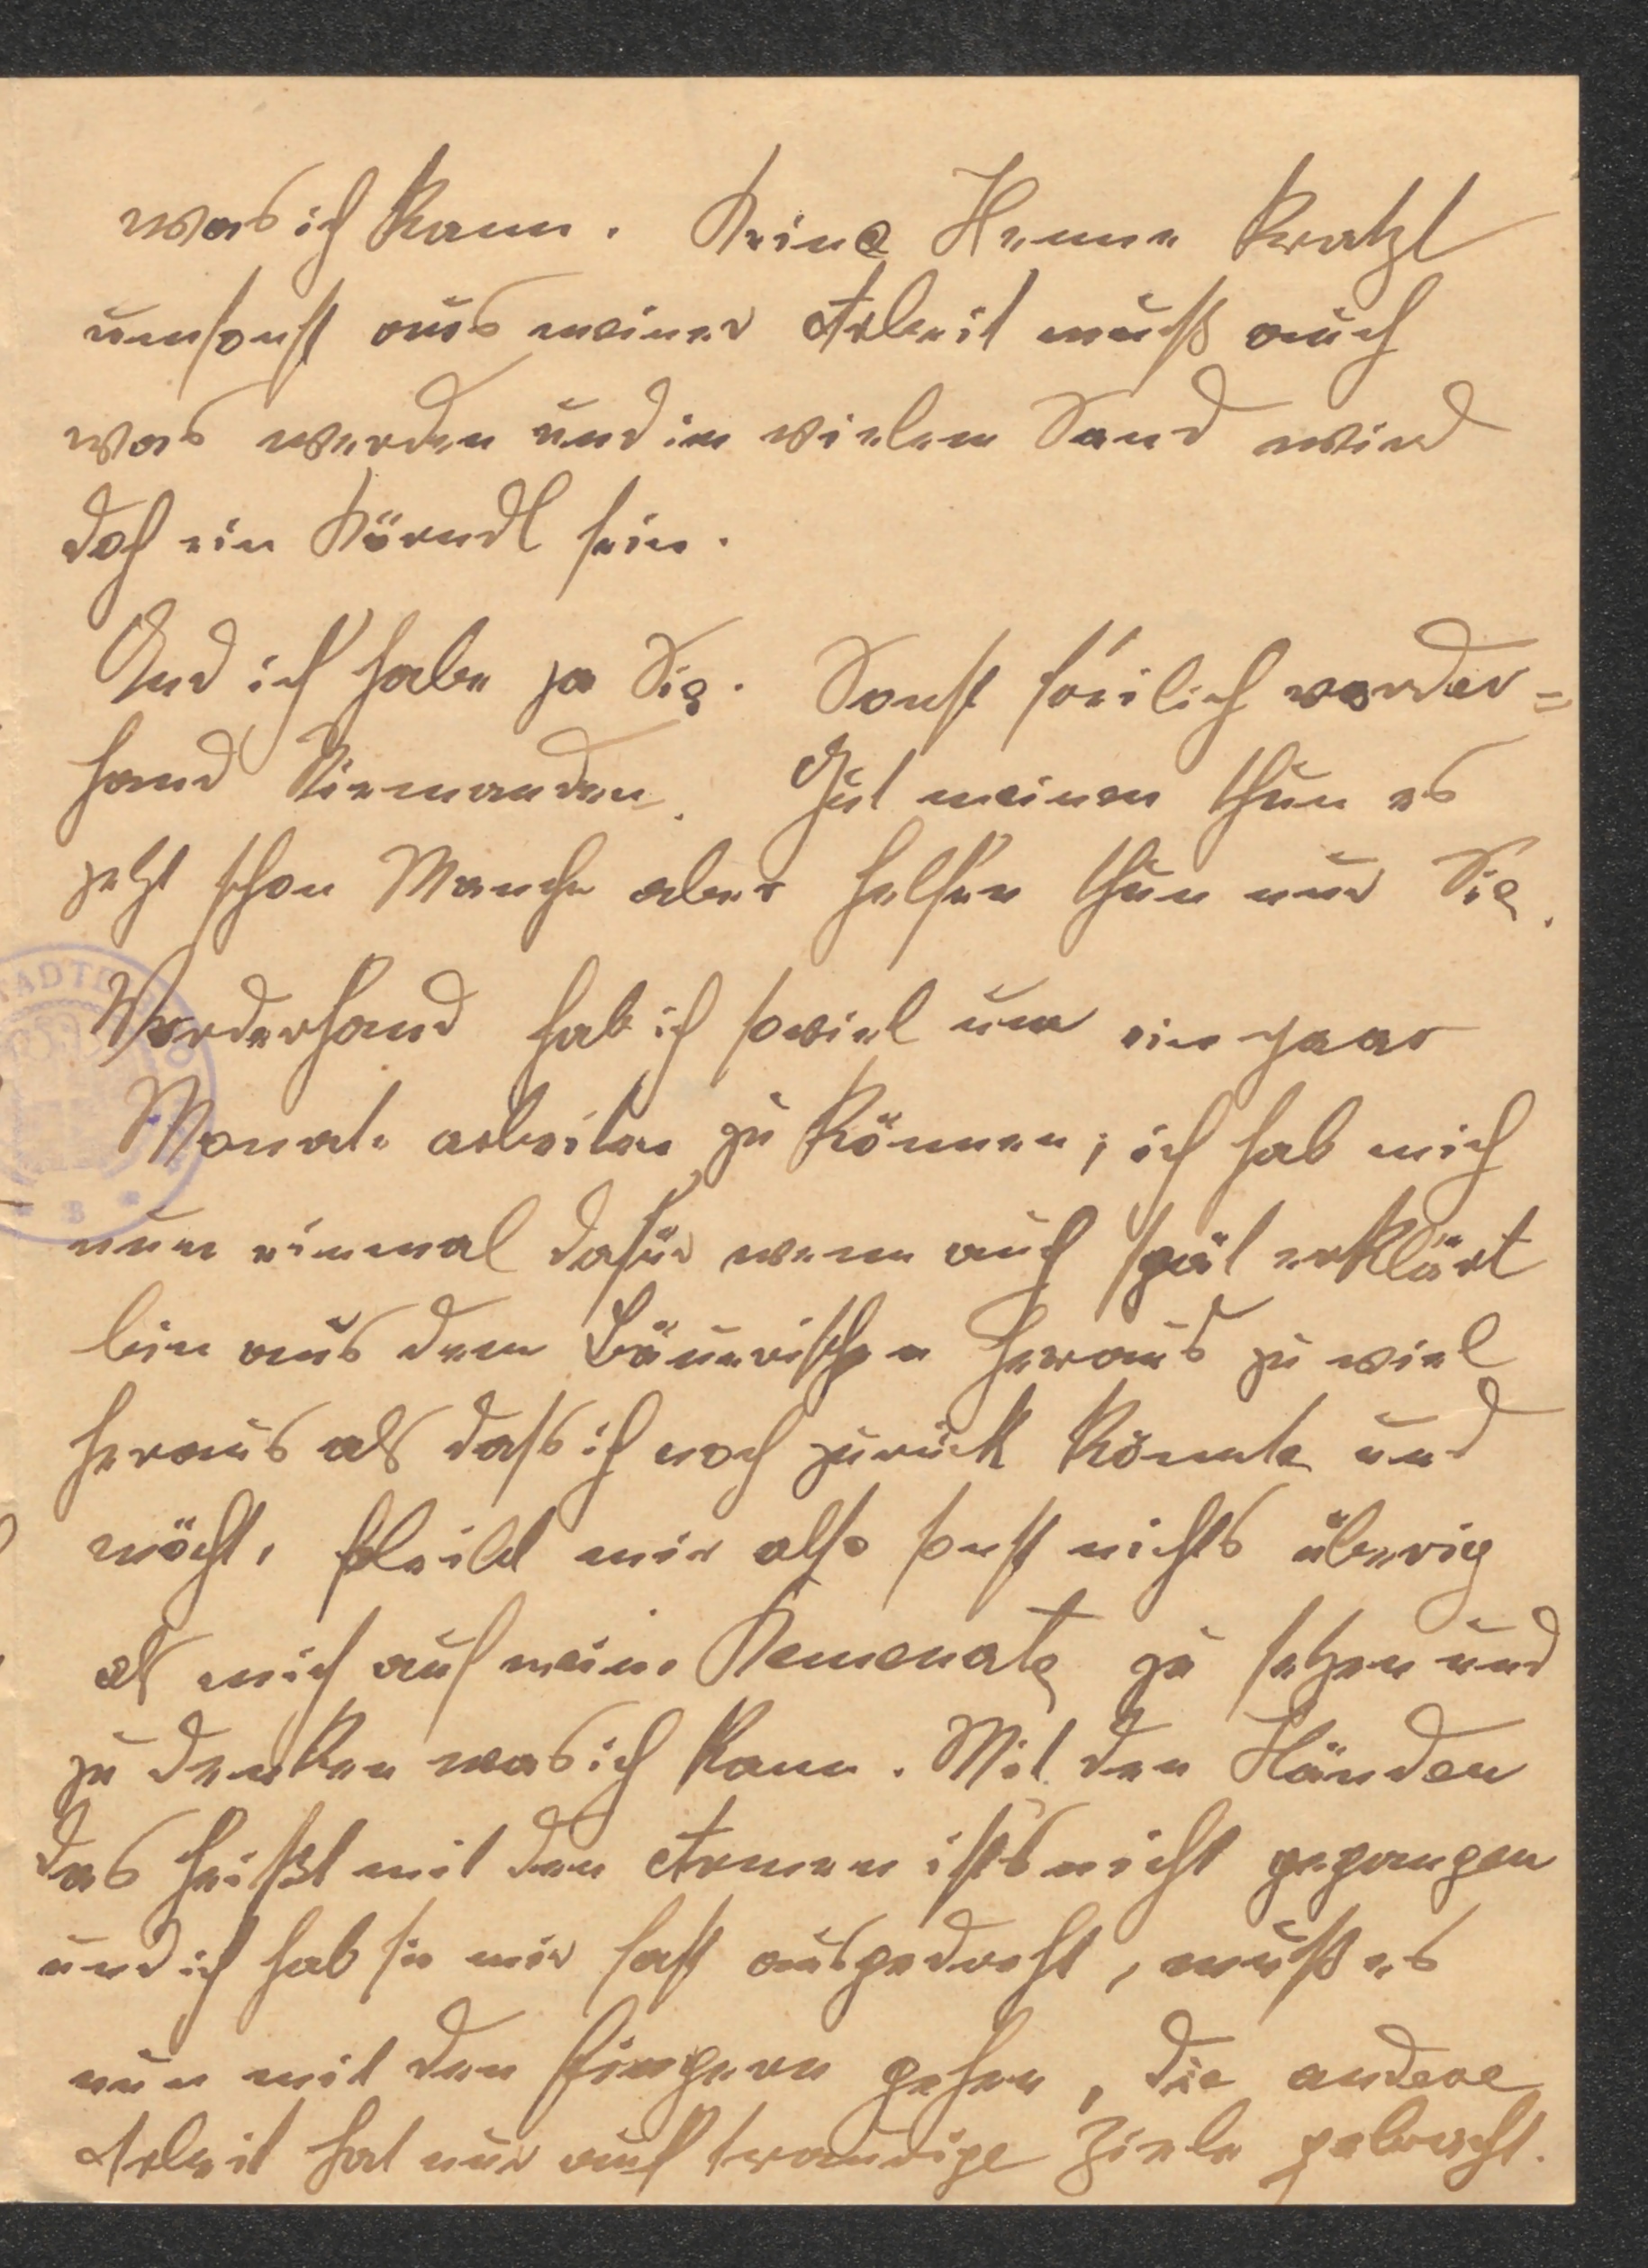 was ich kann. Keine Henne kratzt
umsonst aus meiner Arbeit muß auch
was werden und in vielem Sand wird
doch ein Körndl sein.
Und ich habe ja Sie. Sonst freilich vorder=
hand Niemanden. Gut meinen thun es
jetzt schon Manche aber helfen thun nur Sie.
Vorderhand hab ich soviel um ein paar
Monate arbeiten zu können; ich hab mich
nun einmal dafür wenn auch spät erklärt
bin aus dem Bäuerischen heraus zu viel
heraus als daß ich noch zurück könnte und
möcht, bleibt mir also sonst nichts überig
als mich auf meine Kemenate zu setzen und
zu denken was ich kann. Mit den Händen
das heißt mit den Armen ists nicht gegangen
und ich hab sie mir fast ausgedreht, muß es
nun mit den Fingern gehen, die andere
Arbeit hat nur auf traurige Ziele gebracht.
STADT